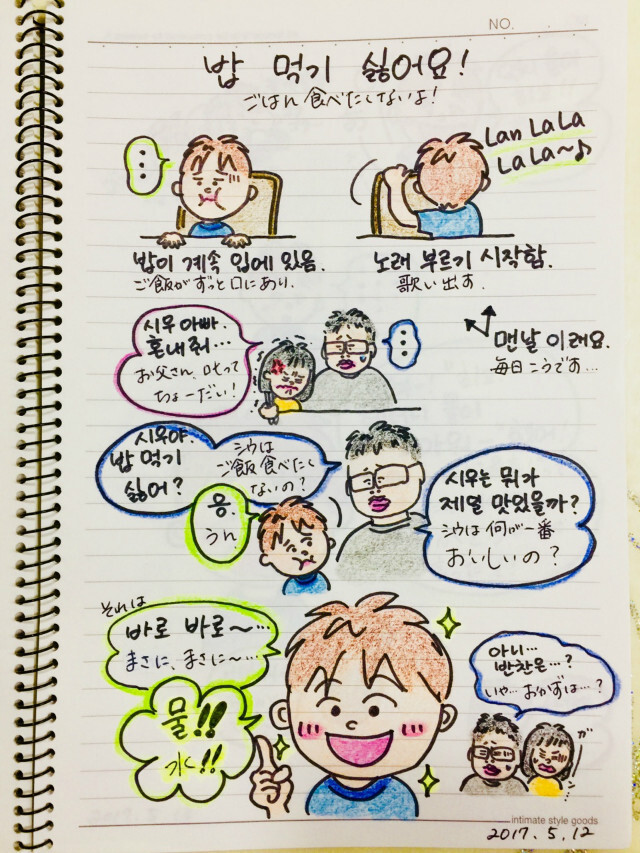 NO.
밥 먹기 싫어요!
ごはん食べたしないよ!
Lan LaLa
LaLa~♪
밥이 계속 입에 있음.
ご飯がずっと口にあり.
노래 부르기 시작함.
歌い出す.
맨날 이래요.
毎日こうです...
시우 아빠.
혼내줘...
お父さん、叱って
ちょーだい!
시우야.
밥 먹기
싫어?
シウは
ご飯食べたし
ないの?
응.
うん
시우는 뭐가
제일 맛있을까?
シウは何が一番
おいしいの?
それは
바로 바로~...
まさに、まさに~...
물!!
水!!
아니...
반찬은...?
いや... おかずは...?
ガ
intimate style goods
2017. 5. 12